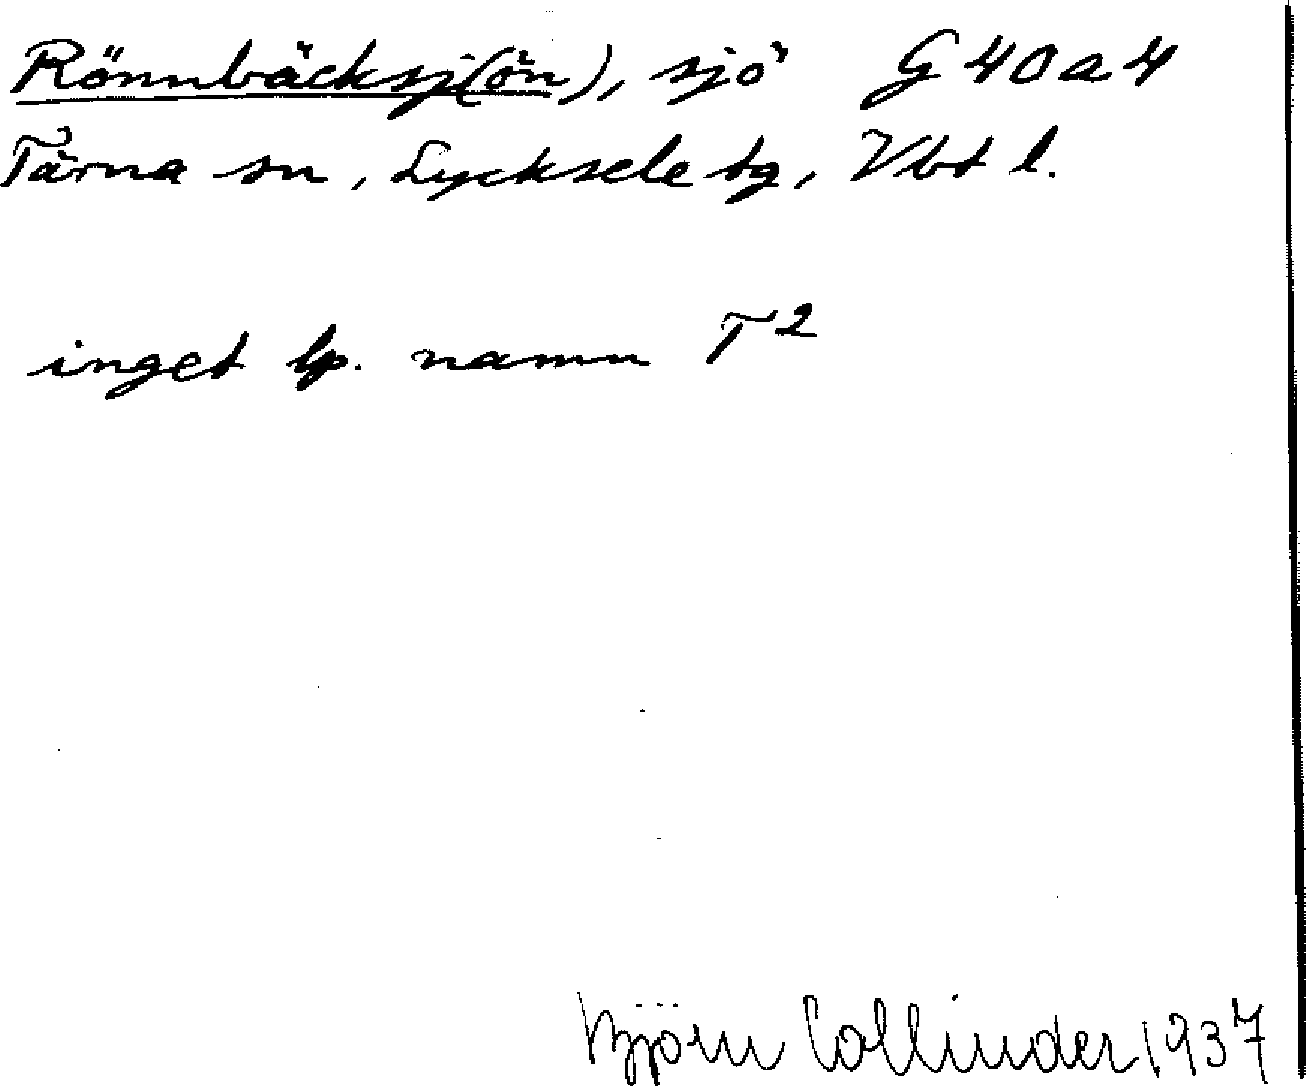 Rönnbäcksj(ön), sjö G 40 a 4
Tärna sn, Lycksele tg, Vbt l.
inget lp. namn T²
Björn Collinder 1937